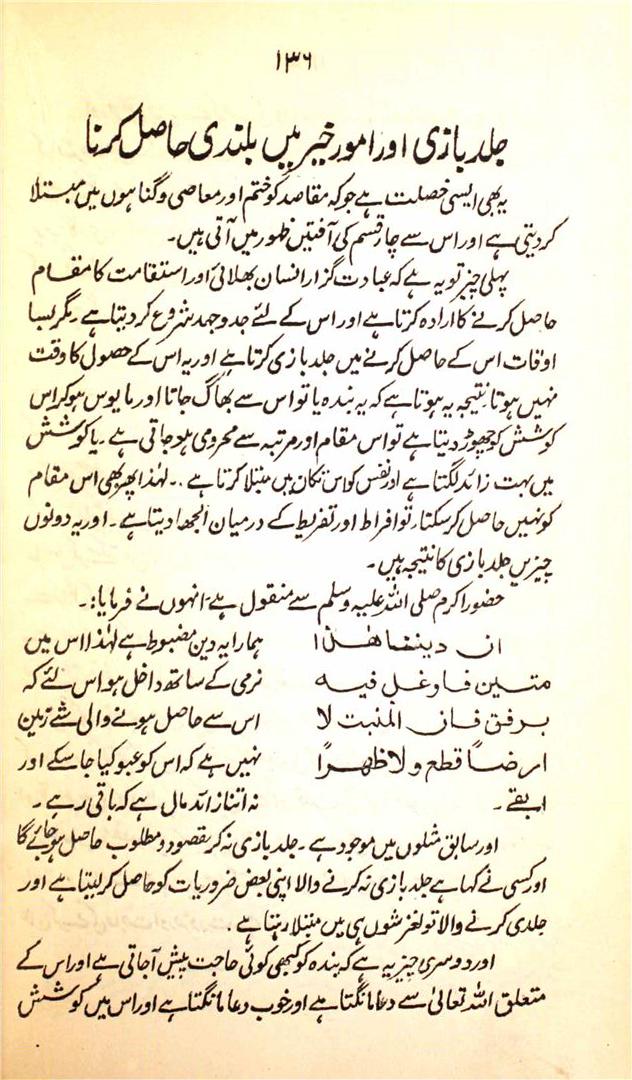 ۱۳۶
جلد بازی اور امور خیر میں بلندی حاصل کرنا
یہ بھی ایسی خصلت ہے جو کہ مقاصد کو ختم اور معاصی و گناہوں میں مبتلا
کر دیتی ہے اور اس سے چار قسم کی آفتیں ظہور میں آتی ہیں۔
پہلی چیز تو یہ ہے کہ عبادت گزار انسان بھلائی اور استقامت کا مقام
حاصل کرنے کا ارادہ کرتا ہے اور اس کے لئے جد و جہد شروع کر دیتا ہے۔ مگر بسا
اوقات اس کے حاصل کرنے میں جلد بازی کرتا ہے اور یہ اس کے حصول کا وقت
نہیں ہوتا نتیجہ یہ ہوتا ہے کہ یہ بندہ یا تو اس سے بھاگ جاتا اور مایوس ہو کر اس
کوشش کو چھوڑ دیتا ہے تو اس مقام اور مرتبہ سے محرومی ہو جاتی ہے۔ یا کوشش
میں بہت زائد لگتا ہے اور نفس کو اس تکان میں مبتلا کرتا ہے۔ لہٰذا پھر بھی اس مقام
کو نہیں حاصل کر سکتا، تو افراط اور تفریط کے درمیان الجھا دیتا ہے۔ اور یہ دونوں
چیزیں جلد بازی کا نتیجہ ہیں۔
حضور اکرم صلی اللہ علیہ وسلم سے منقول ہے، انہوں نے فرمایا:۔
ان دیننا ھٰذا
متین فاوغل فیه
برفق فان المنبت لا
ارضاً قطع ولا ظهرًا
ابقے۔
ہمارا یہ دین مضبوط ہے لہٰذا اس میں
نرمی کے ساتھ داخل ہو اس لئے کہ
اس سے حاصل ہونے والی شے زمین
نہیں ہے کہ اس کو عبو کیا جا سکے اور
نہ اتنا زائد مال ہے کہ باقی رہے۔
اور سابق مثلوں میں موجود ہے۔ جلد بازی نہ کر مقصود و مطلوب حاصل ہو جائے گا
اور کسی نے کہا ہے جلد بازی نہ کرنے والا اپنی بعض ضروریات کو حاصل کر لیتا ہے اور
جلدی کرنے والا تو لغزشوں ہی میں مبتلا رہتا ہے۔
اور دوسری چیز یہ ہے کہ بندہ کو کبھی کوئی حاجت پیش آ جاتی ہے اور اس کے
متعلق اللہ تعالیٰ سے دعا مانگتا ہے اور خوب دعا مانگتا ہے اور اس میں کوشش